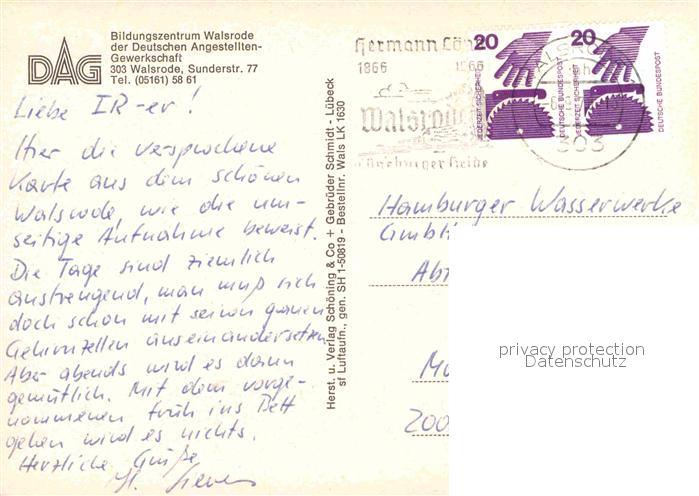 DAG
Bildungszentrum Walsrode
der Deutschen Angestellten-
Gewerkschaft
303 Walsrode, Sunderstr. 77
Tel. (05161) 58 61
Liebe IR-er!
Hier die versprochene
Karte aus dem schönen
Walsrode, wie die um-
seitige Aufnahme beweist.
Die Tage sind ziemlich
anstrengend, man muß sich
doch schon mit seinen grauen
Gehirnzellen auseinandersetzen.
Aber abends wird es dann
gemütlich. Mit dem vorge-
nommenen früh ins Bett
gehen wird es nichts.
Herzliche Grüße
Herst. u. Verlag Schöning & Co + Gebrüder Schmidt - Lübeck
sf Luftaufn., gen. SH 1-50819 - Bestellnr. Wals LK 1630
Hermann Löns
1866 1966
Walsrode
Lüneburger Heide
20
JEDERZEIT SICHERHEIT
DEUTSCHE BUNDESPOST
20
JEDERZEIT SICHERHEIT
DEUTSCHE BUNDESPOST
303
Hamburger Wasserwerke
GmbH
privacy protection
Datenschutz
200